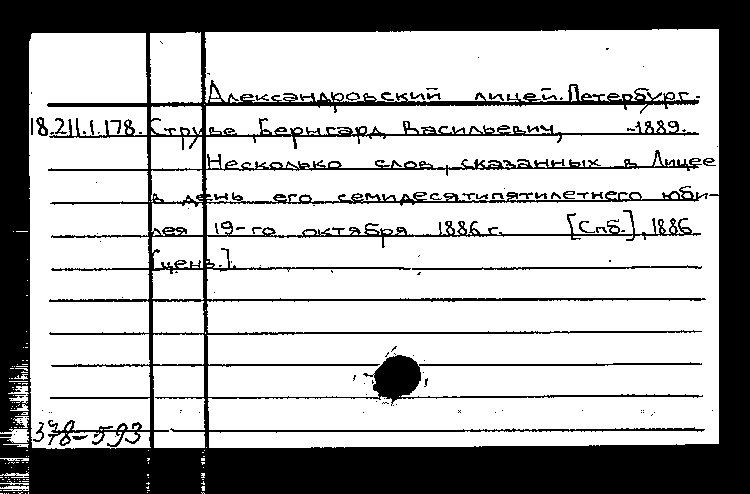 Александровский лицей. Петербург.
18.211.1.178. Струве, Бернгард Васильевич, -1889.
Несколько слов, сказанных в Лицее
в день его семидесятипятилетнего юби-
лея 19-го октября 1886 г. [Спб.], 1886
[ценз.].
378-593